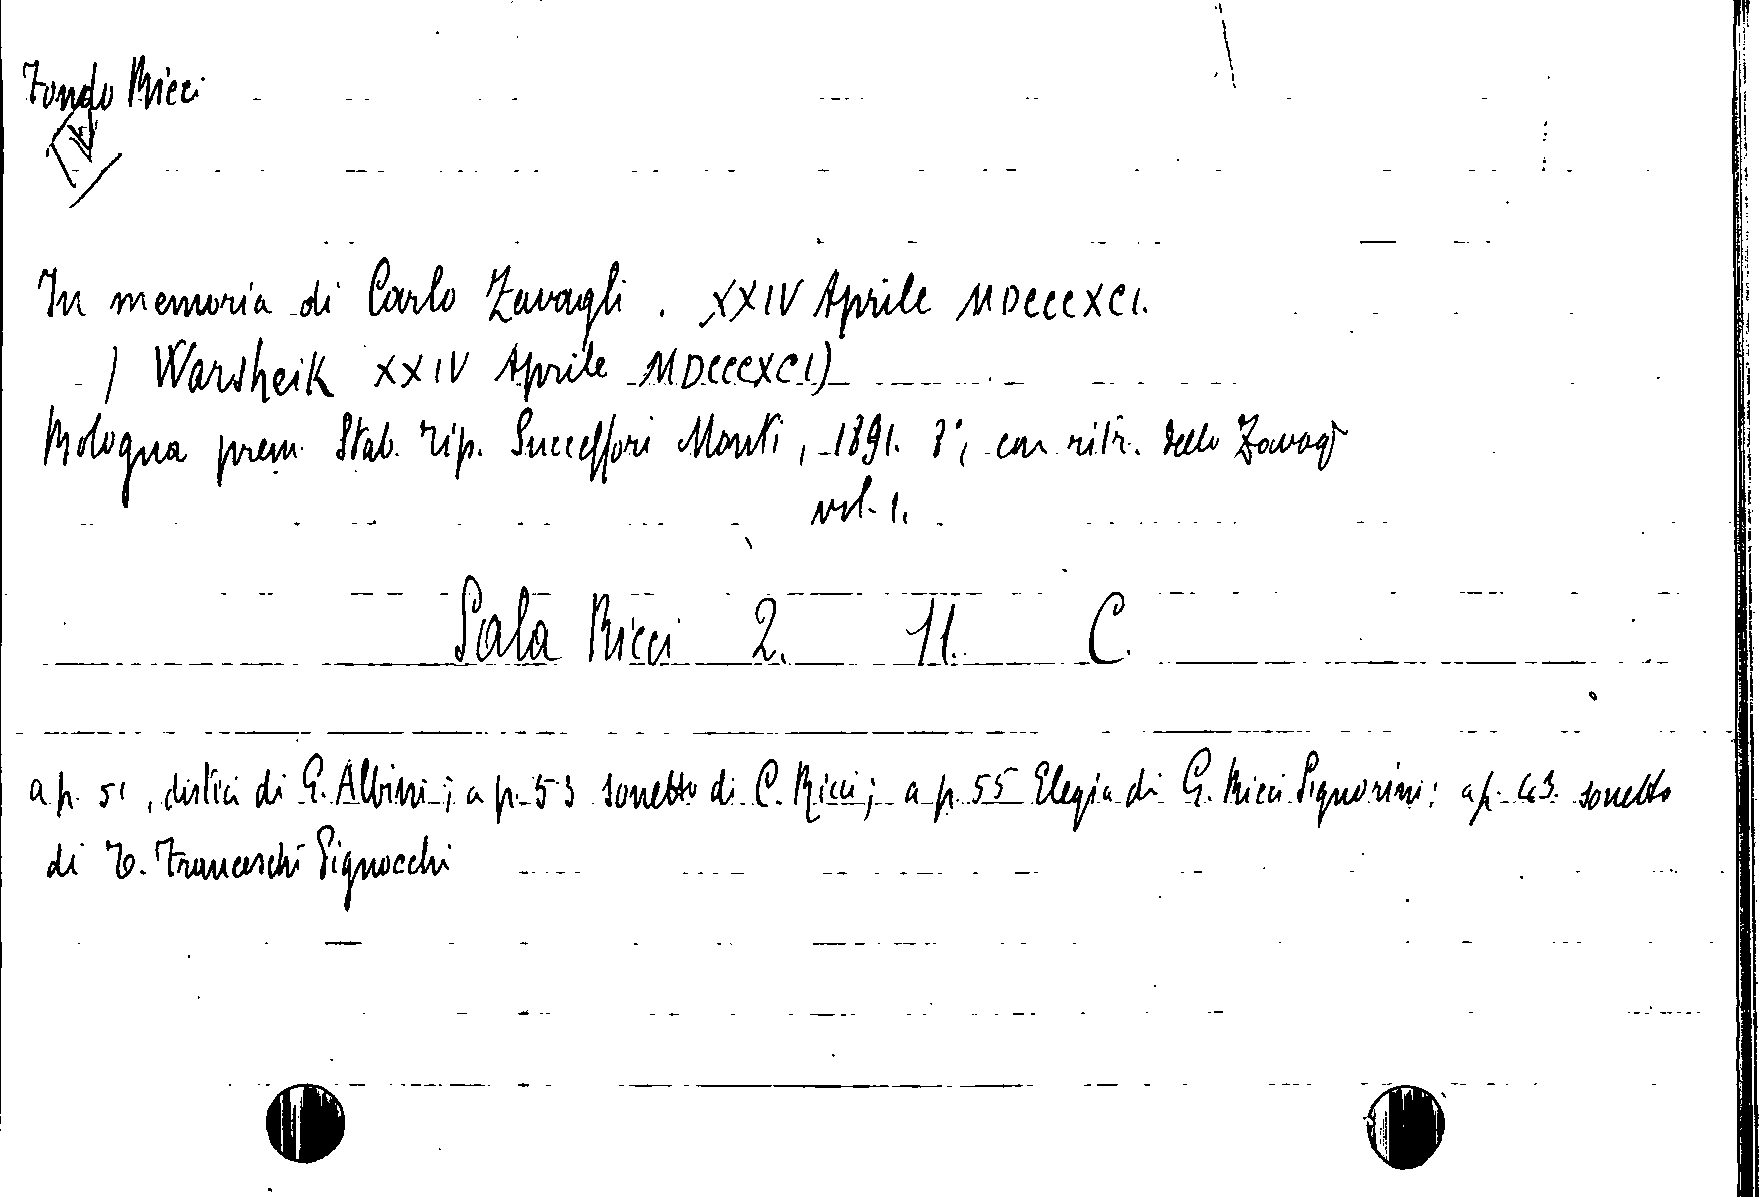 Fondo Ricci
In memoria di Carlo Zavagli. XXIV Aprile MDCCCXCI.
) Warsheik XXIV Aprile MDCCCXCI)
Bologna prem. Stab. Tip. Successori Monti, 1891. 8°, con ritr. dello Zavagl
vol. 1.
Sala Ricci 2. 11. C.
a p. 51, distici di G. Albini; a p. 53 sonetto di C. Ricci; a p. 55 Elegia di G. Ricci Signorini: a p. 63. sonetto
di T. Franceschi Pignocchi